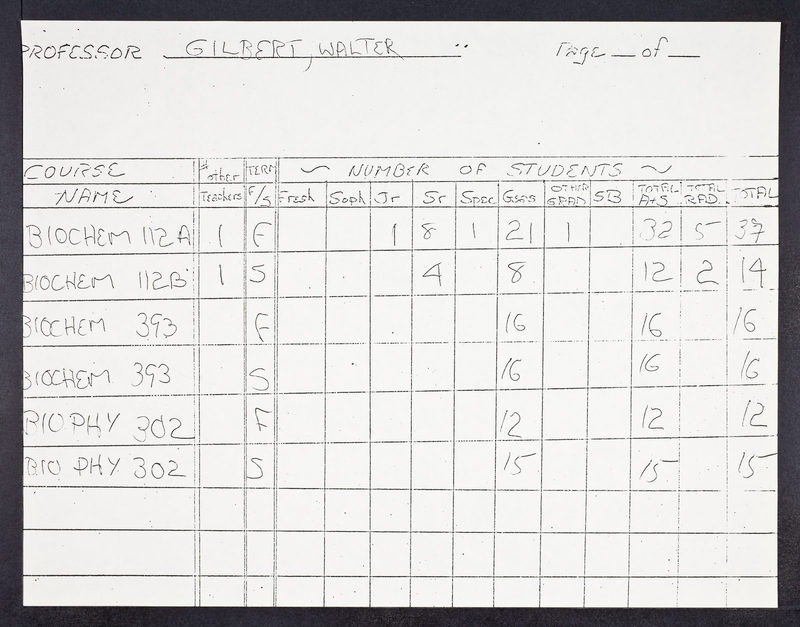 PROFESSOR GILBERT, WALTER Page __ of __
COURSE # other TERM ~ NUMBER OF STUDENTS ~
NAME Teachers F/S Fresh Soph Jr Sr Spec Gsas OTHER GRAD SB TOTAL A+S TOTAL RAD. TOTAL
BIOCHEM 112A 1 F 1 8 1 21 1 32 5 37
BIOCHEM 112B 1 S 4 8 12 2 14
BIOCHEM 393 F 16 16 16
BIOCHEM 393 S 16 16 16
BIOPHY 302 F 12 12 12
BIO PHY 302 S 15 15 15